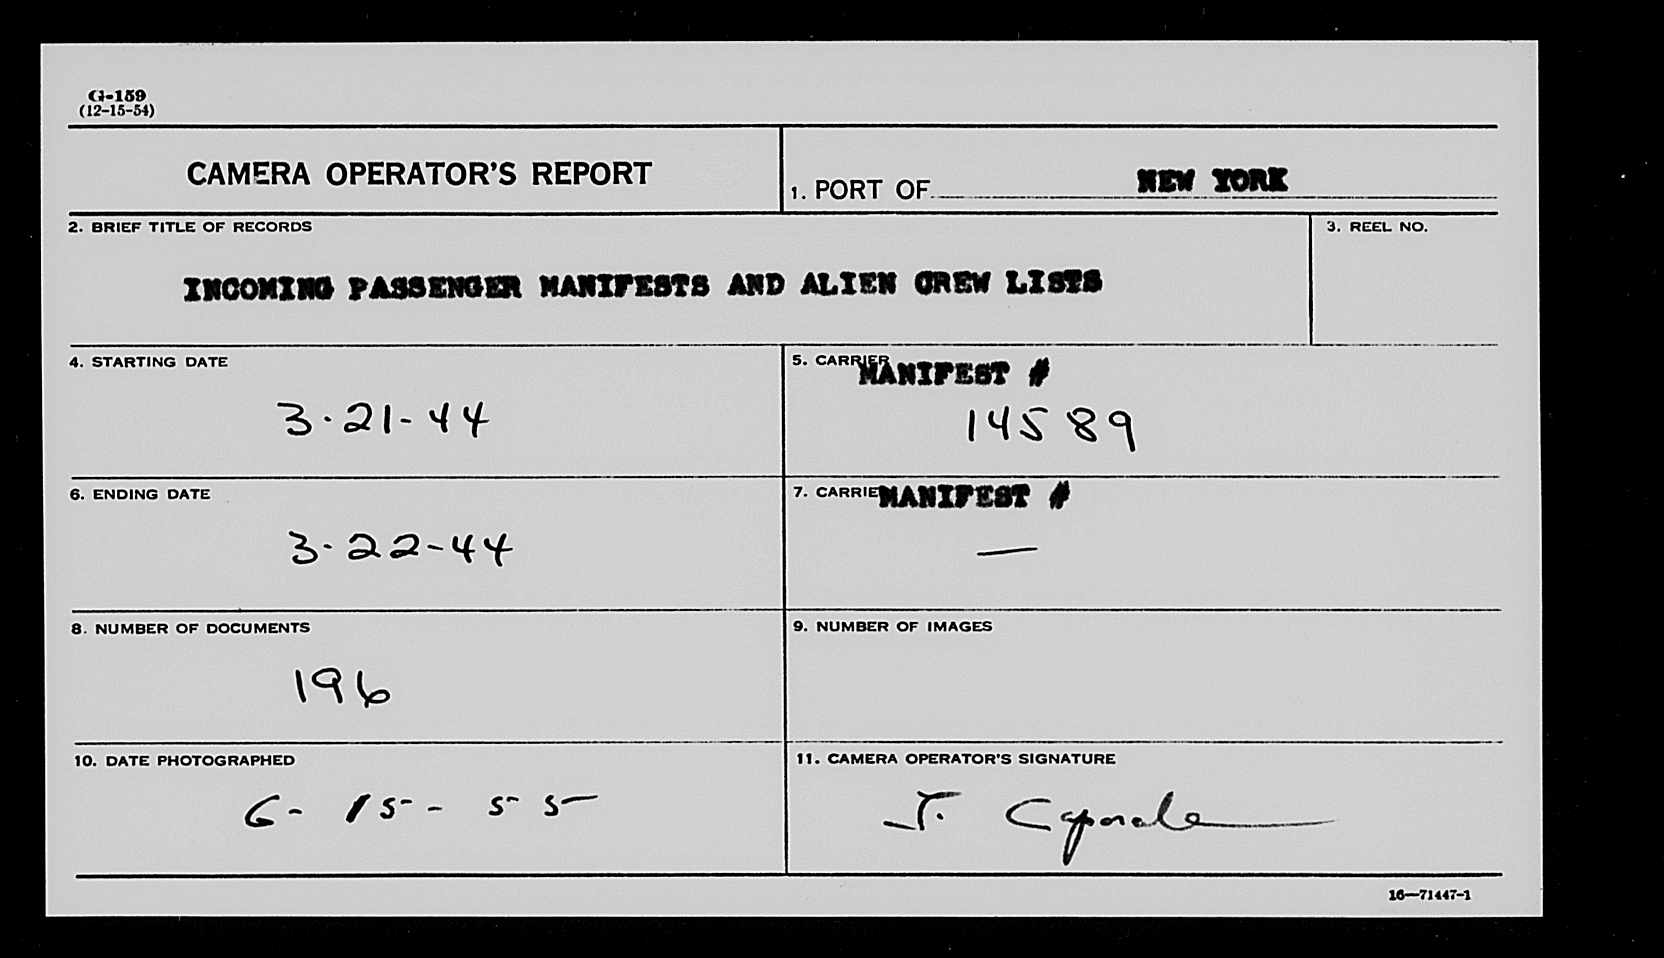 G-159
(12-15-54)
CAMERA OPERATOR'S REPORT
1. PORT OF NEW YORK
2. BRIEF TITLE OF RECORDS
3. REEL NO.
INCOMING PASSENGER MANIFESTS AND ALIEN CREW LISTS
4. STARTING DATE
5. CARRIER MANIFEST #
3-21-44
14589
6. ENDING DATE
7. CARRIER MANIFEST #
3-22-44
—
8. NUMBER OF DOCUMENTS
9. NUMBER OF IMAGES
196
10. DATE PHOTOGRAPHED
11. CAMERA OPERATOR'S SIGNATURE
6-15-55
J. Caporale
16—71447-1